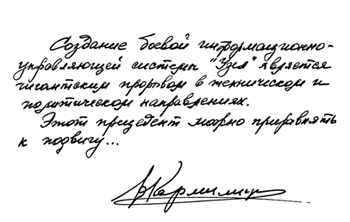 Создание боевой информационно-
управляющей системы "Узел" является
гигантским прорывом в техническом и
политическом направлениях.
Этот прецедент можно приравнять
к подвигу...